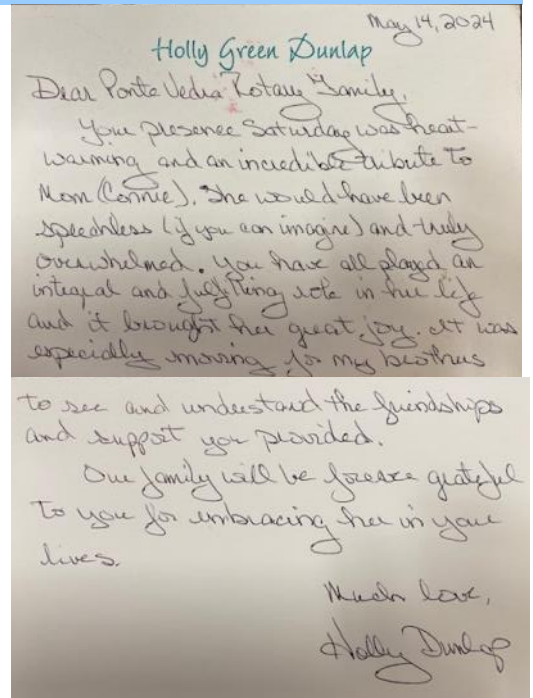 May 14, 2024
Holly Green Dunlap
Dear Ponte Vedra Rotary Family,
Your presence Saturday was heart-
warming and an incredible tribute to
Mom (Connie). She would have been
speechless (if you can imagine) and truly
overwhelmed. You have all played an
integral and fulfilling role in her life
and it brought her great joy. It was
especially moving for my brothers
to see and understand the friendships
and support you provided.
Our family will be forever grateful
to you for embracing her in your
lives.
Much love,
Holly Dunlap